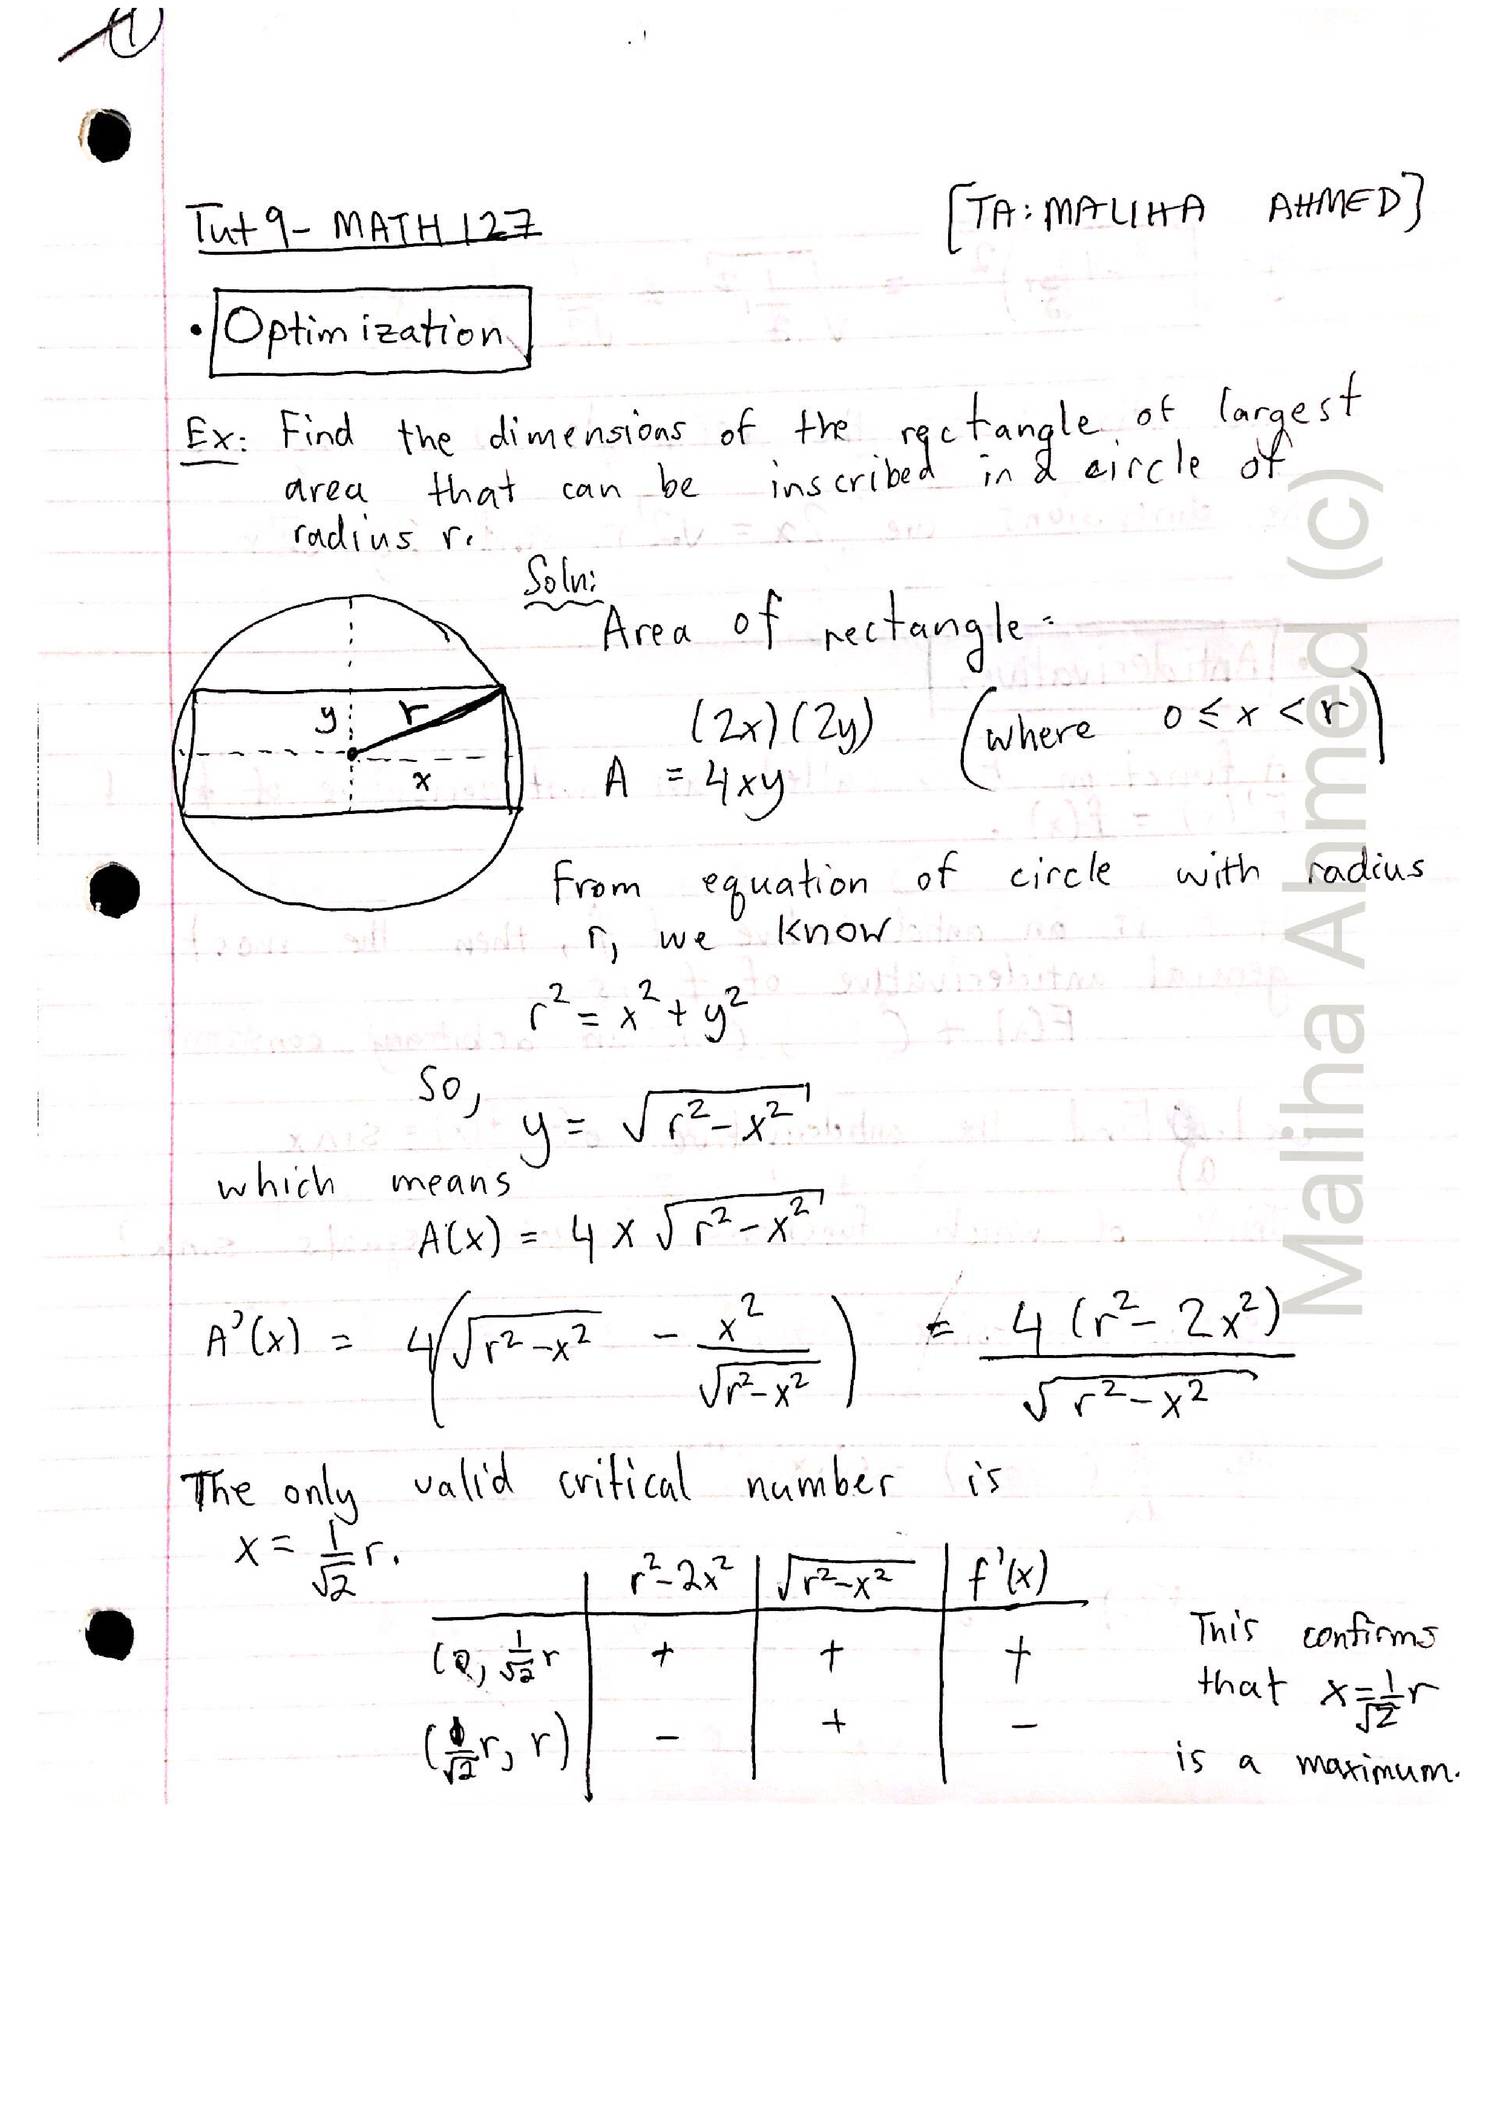 1
Tut 9 - MATH 127
[TA: MALIHA AHMED]
• Optimization
Ex: Find the dimensions of the rectangle of largest
area that can be inscribed in a circle of
radius r.
Soln:
Area of rectangle =
(2x)(2y) (where 0 ≤ x < r)
A = 4xy
y r
x
From equation of circle with radius
r, we know
r² = x² + y²
So,
y = √(r²-x²)
which means
A(x) = 4x√(r²-x²)
A'(x) = 4(√(r²-x²) - x²/√(r²-x²)) = 4(r²-2x²)/√(r²-x²)
The only valid critical number is
x = 1/√2 r.
r²-2x² | √(r²-x²) | f'(x)
(0, 1/√2 r | + | + | +
(1/√2 r, r) | - | + | -
This confirms
that x = 1/√2 r
is a maximum.
Maliha Ahmed (c)